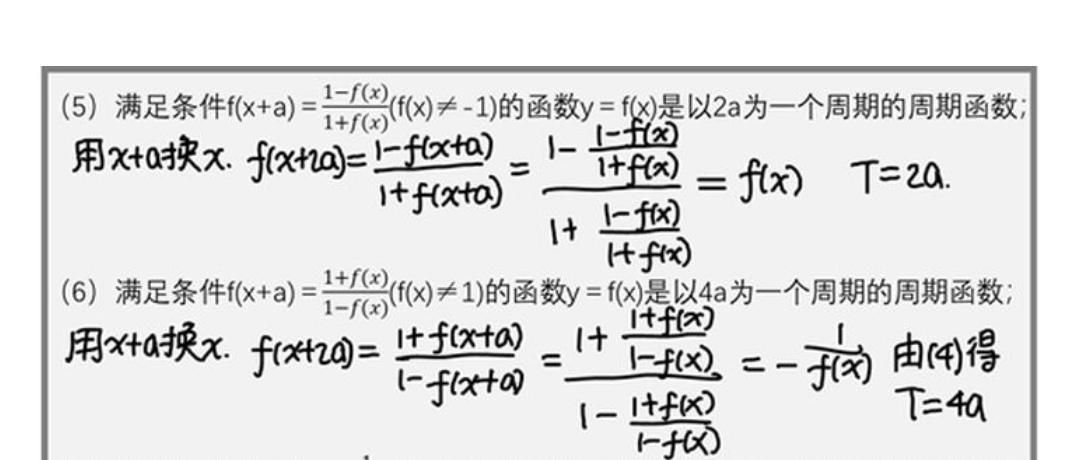 (5) 满足条件f(x+a) = \frac{1-f(x)}{1+f(x)}(f(x)≠-1)的函数y = f(x)是以2a为一个周期的周期函数;
用x+a换x. f(x+2a)= \frac{1-f(x+a)}{1+f(x+a)} = \frac{1-\frac{1-f(x)}{1+f(x)}}{1+\frac{1-f(x)}{1+f(x)}} = f(x) T=2a.
(6) 满足条件f(x+a) = \frac{1+f(x)}{1-f(x)}(f(x)≠1)的函数y = f(x)是以4a为一个周期的周期函数;
用x+a换x. f(x+2a)= \frac{1+f(x+a)}{1-f(x+a)} = \frac{1+\frac{1+f(x)}{1-f(x)}}{1-\frac{1+f(x)}{1-f(x)}} = -\frac{1}{f(x)} 由(4)得
T=4a